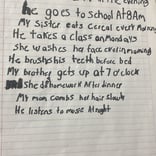 the evening
he goes to school At8Am
My sister eats Cereal every Morning
He takes a class on Mondays
She washes her face every morning
He brushis his teeth before bed
My brother gets up at 7 o'clock
She do homework After dinner
My mom combs her hair slowly
He listens to music At night